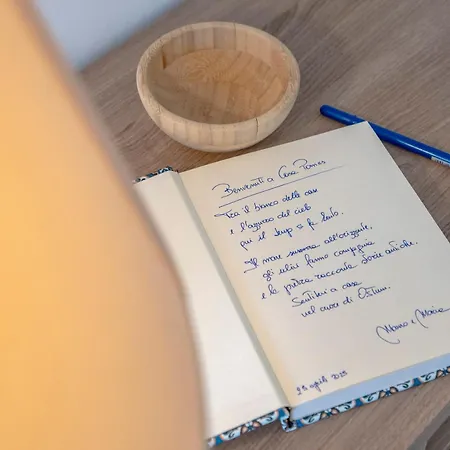 Benvenuti a Casa Pomes
Tra il bianco delle case
e l'azzurro del cielo
qui il tempo si fa lento.
Il mare sussurra all'orizzonte,
gli ulivi fanno compagnia
e la pietra racconta storie antiche.
Sentitevi a casa
nel cuore di Ostuni.
Marco e Maria
25 aprile 2025